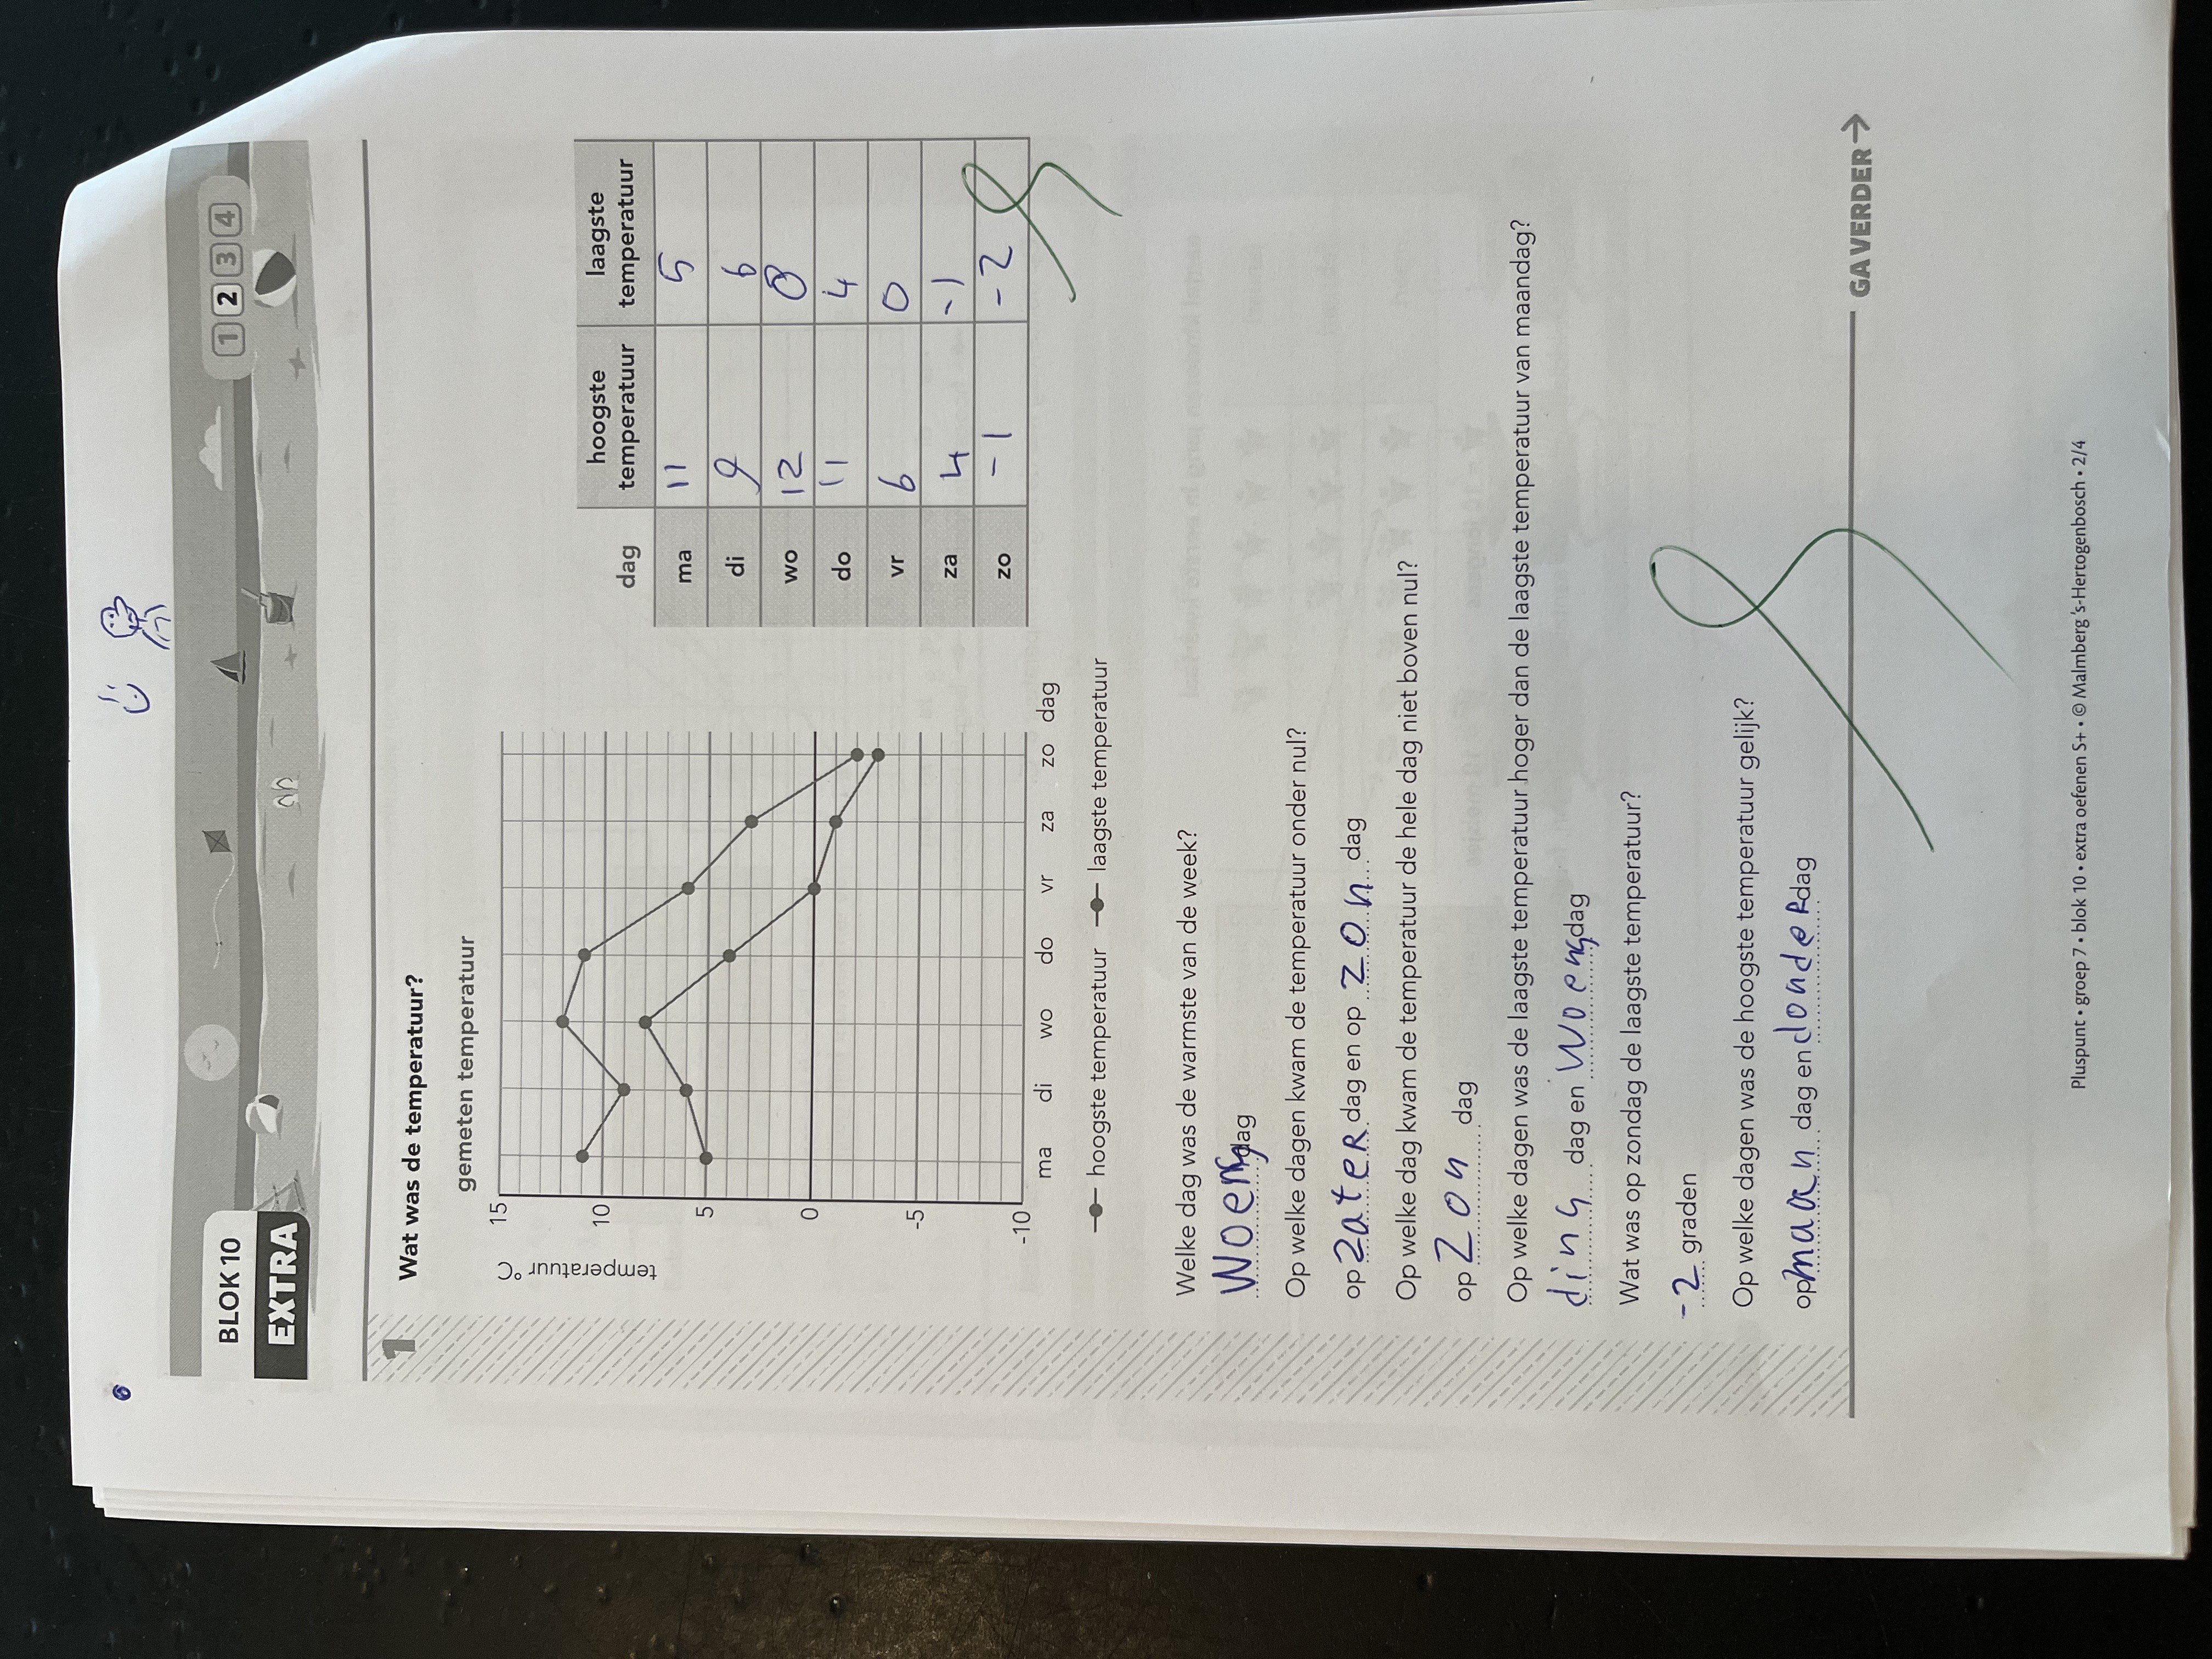 6
BLOK 10
EXTRA
1 2 3 4
1
Wat was de temperatuur?
gemeten temperatuur
temperatuur °C
15
10
5
0
-5
-10
ma di wo do vr za zo dag
hoogste temperatuur laagste temperatuur
dag hoogste temperatuur laagste temperatuur
ma 11 5
di 9 6
wo 12 8
do 11 4
vr 6 0
za 4 -1
zo -1 -2
Welke dag was de warmste van de week?
Woensdag
Op welke dagen kwam de temperatuur onder nul?
op zater dag en op zon dag
Op welke dag kwam de temperatuur de hele dag niet boven nul?
op zon dag
Op welke dagen was de laagste temperatuur hoger dan de laagste temperatuur van maandag?
dins dag en Woensdag
Wat was op zondag de laagste temperatuur?
-2 graden
Op welke dagen was de hoogste temperatuur gelijk?
op maan dag en donderdag
GA VERDER →
Pluspunt • groep 7 • blok 10 • extra oefenen S+ • © Malmberg 's-Hertogenbosch • 2/4